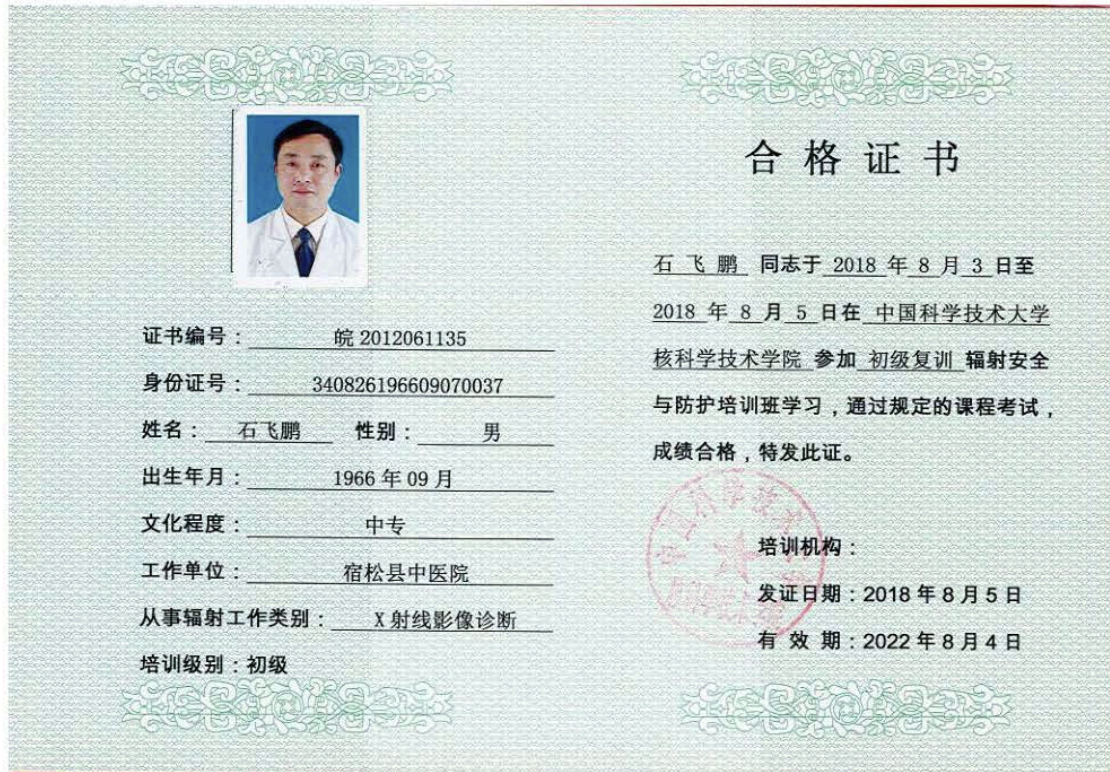 证书编号：皖 2012061135
身份证号：340826196609070037
姓名：石飞鹏 性别：男
出生年月：1966 年 09 月
文化程度：中专
工作单位：宿松县中医院
从事辐射工作类别：X 射线影像诊断
培训级别：初级
合格证书
石飞鹏 同志于 2018 年 8 月 3 日至
2018 年 8 月 5 日在 中国科学技术大学
核科学技术学院 参加 初级复训 辐射安全
与防护培训班学习，通过规定的课程考试，
成绩合格，特发此证。
培训机构：
发证日期：2018 年 8 月 5 日
有 效 期：2022 年 8 月 4 日
中国科学技术大学